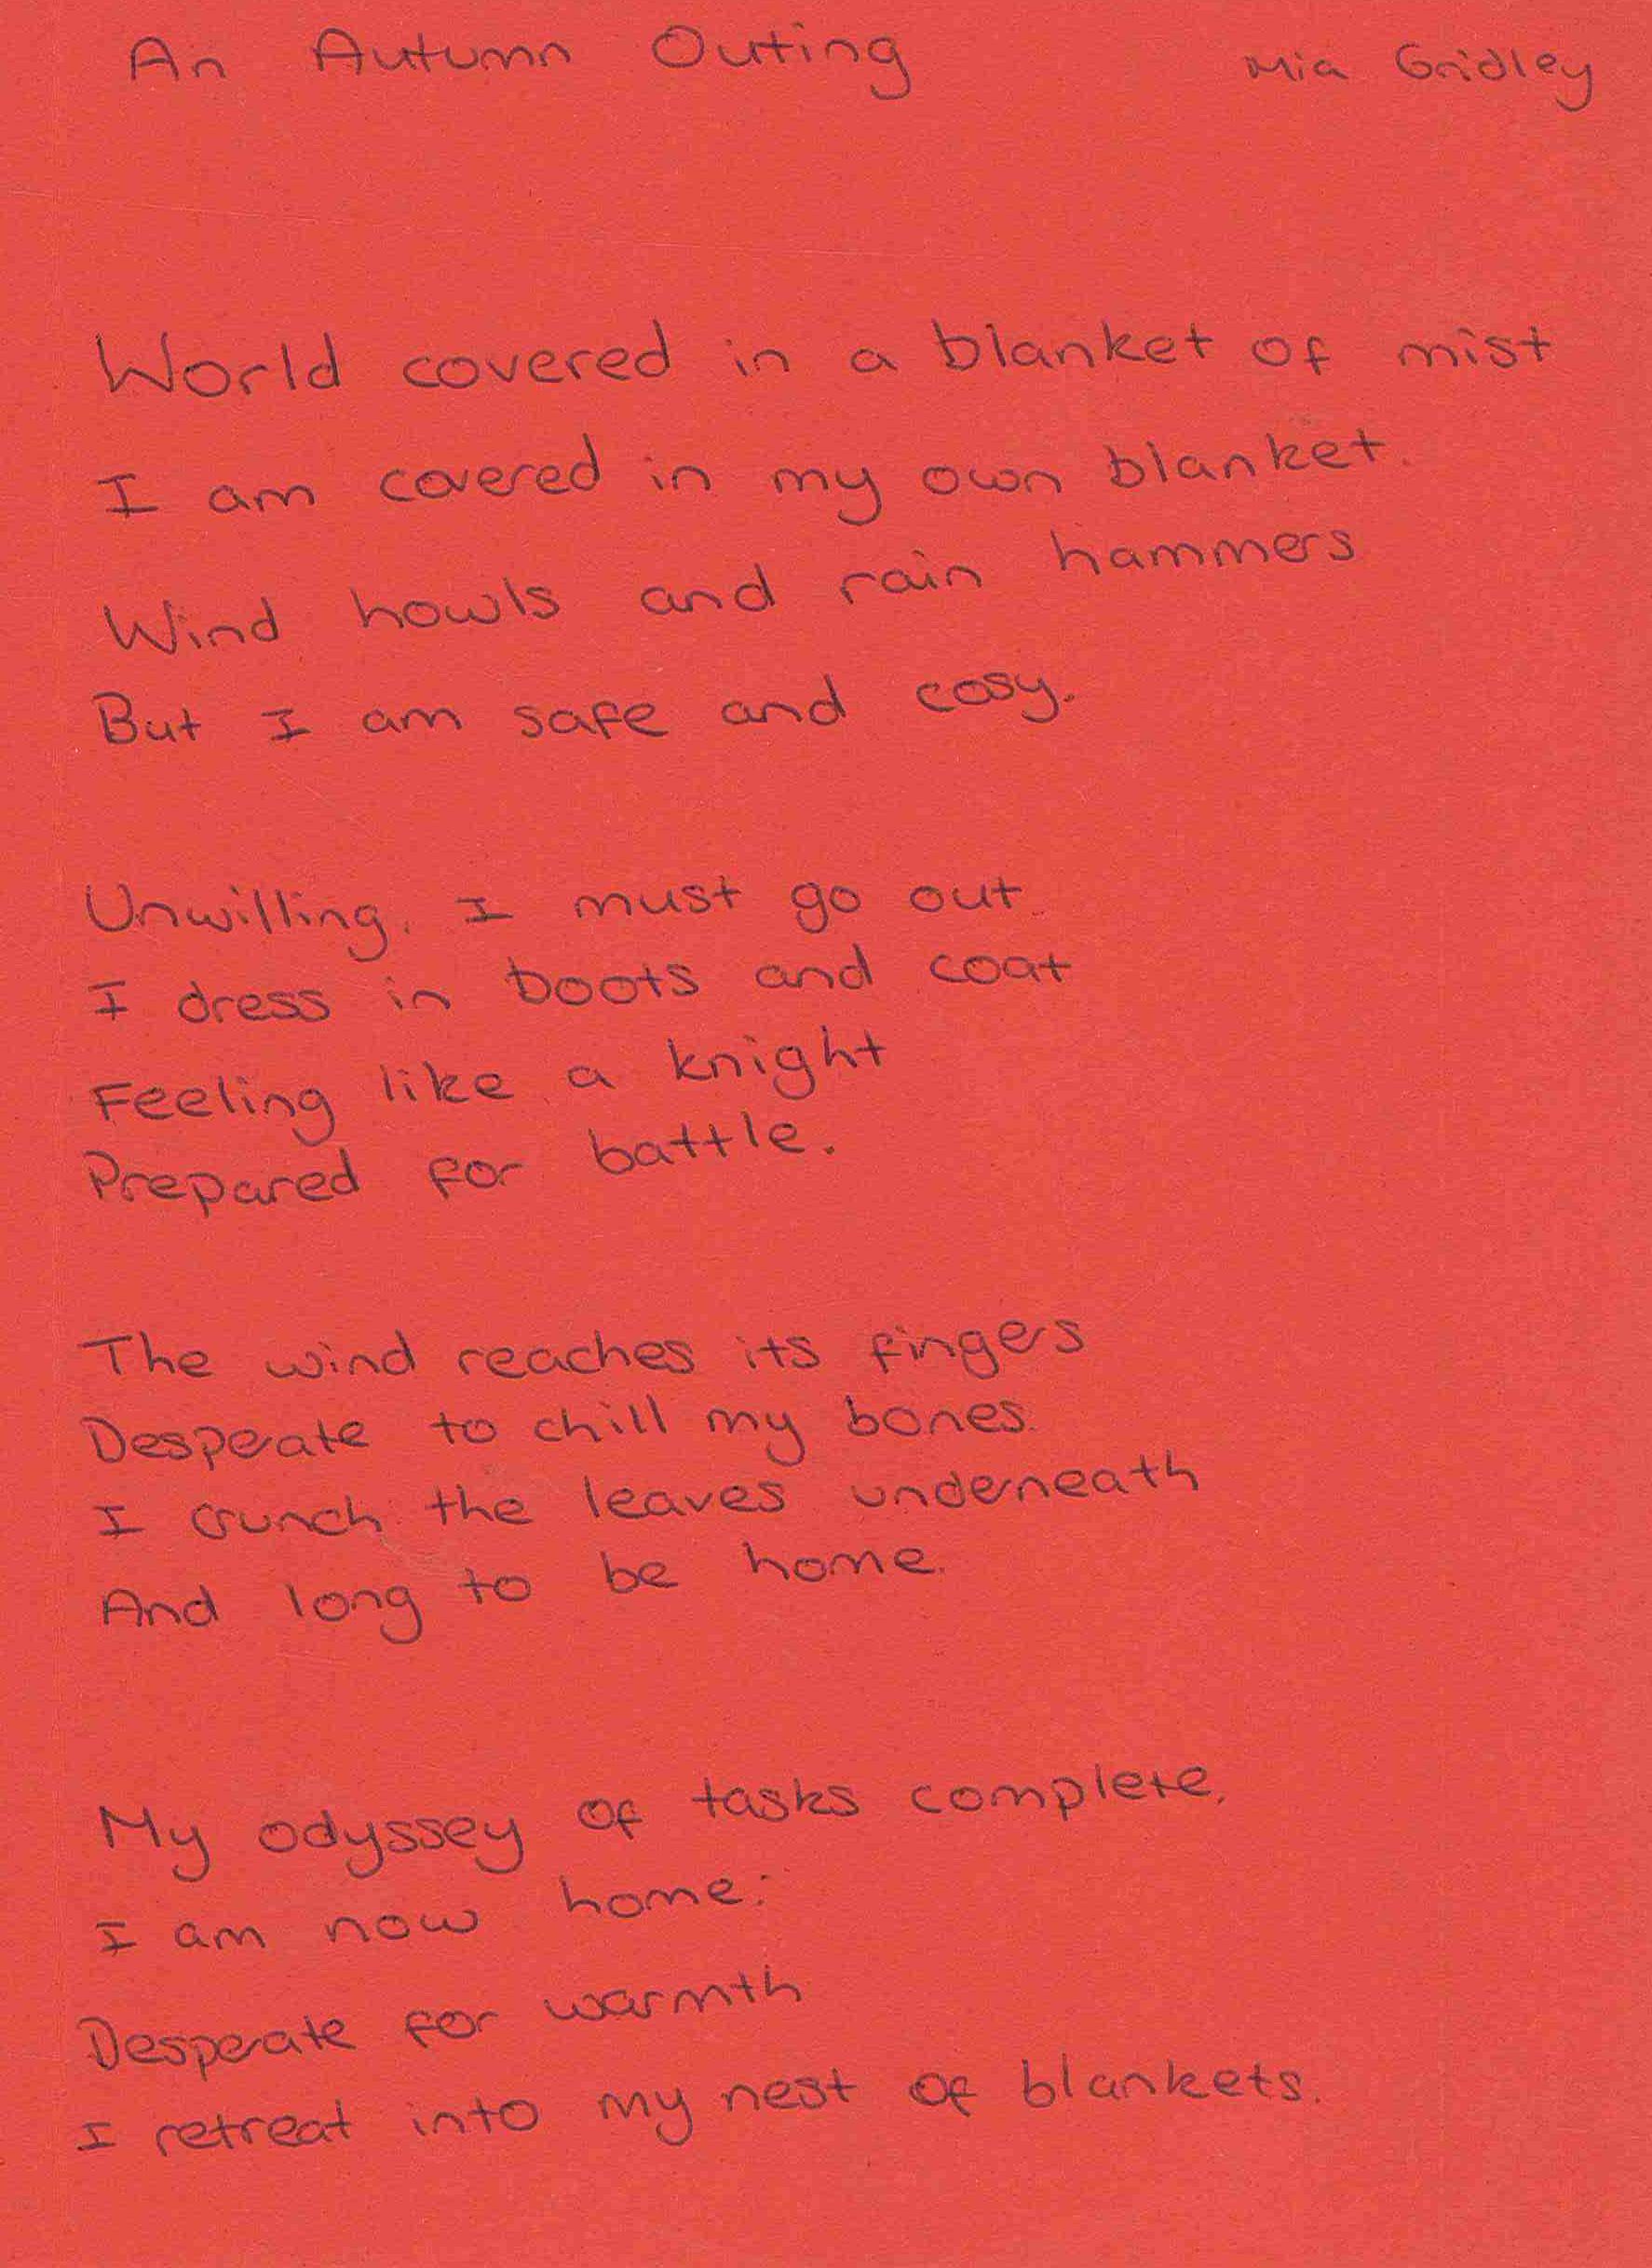 An Autumn Outing Mia Gridley
World covered in a blanket of mist
I am covered in my own blanket.
Wind howls and rain hammers
But I am safe and cosy.
Unwilling, I must go out.
I dress in boots and coat
Feeling like a knight
Prepared for battle.
The wind reaches its fingers
Desperate to chill my bones.
I crunch the leaves underneath
And long to be home.
My odyssey of tasks complete,
I am now home:
Desperate for warmth
I retreat into my nest of blankets.